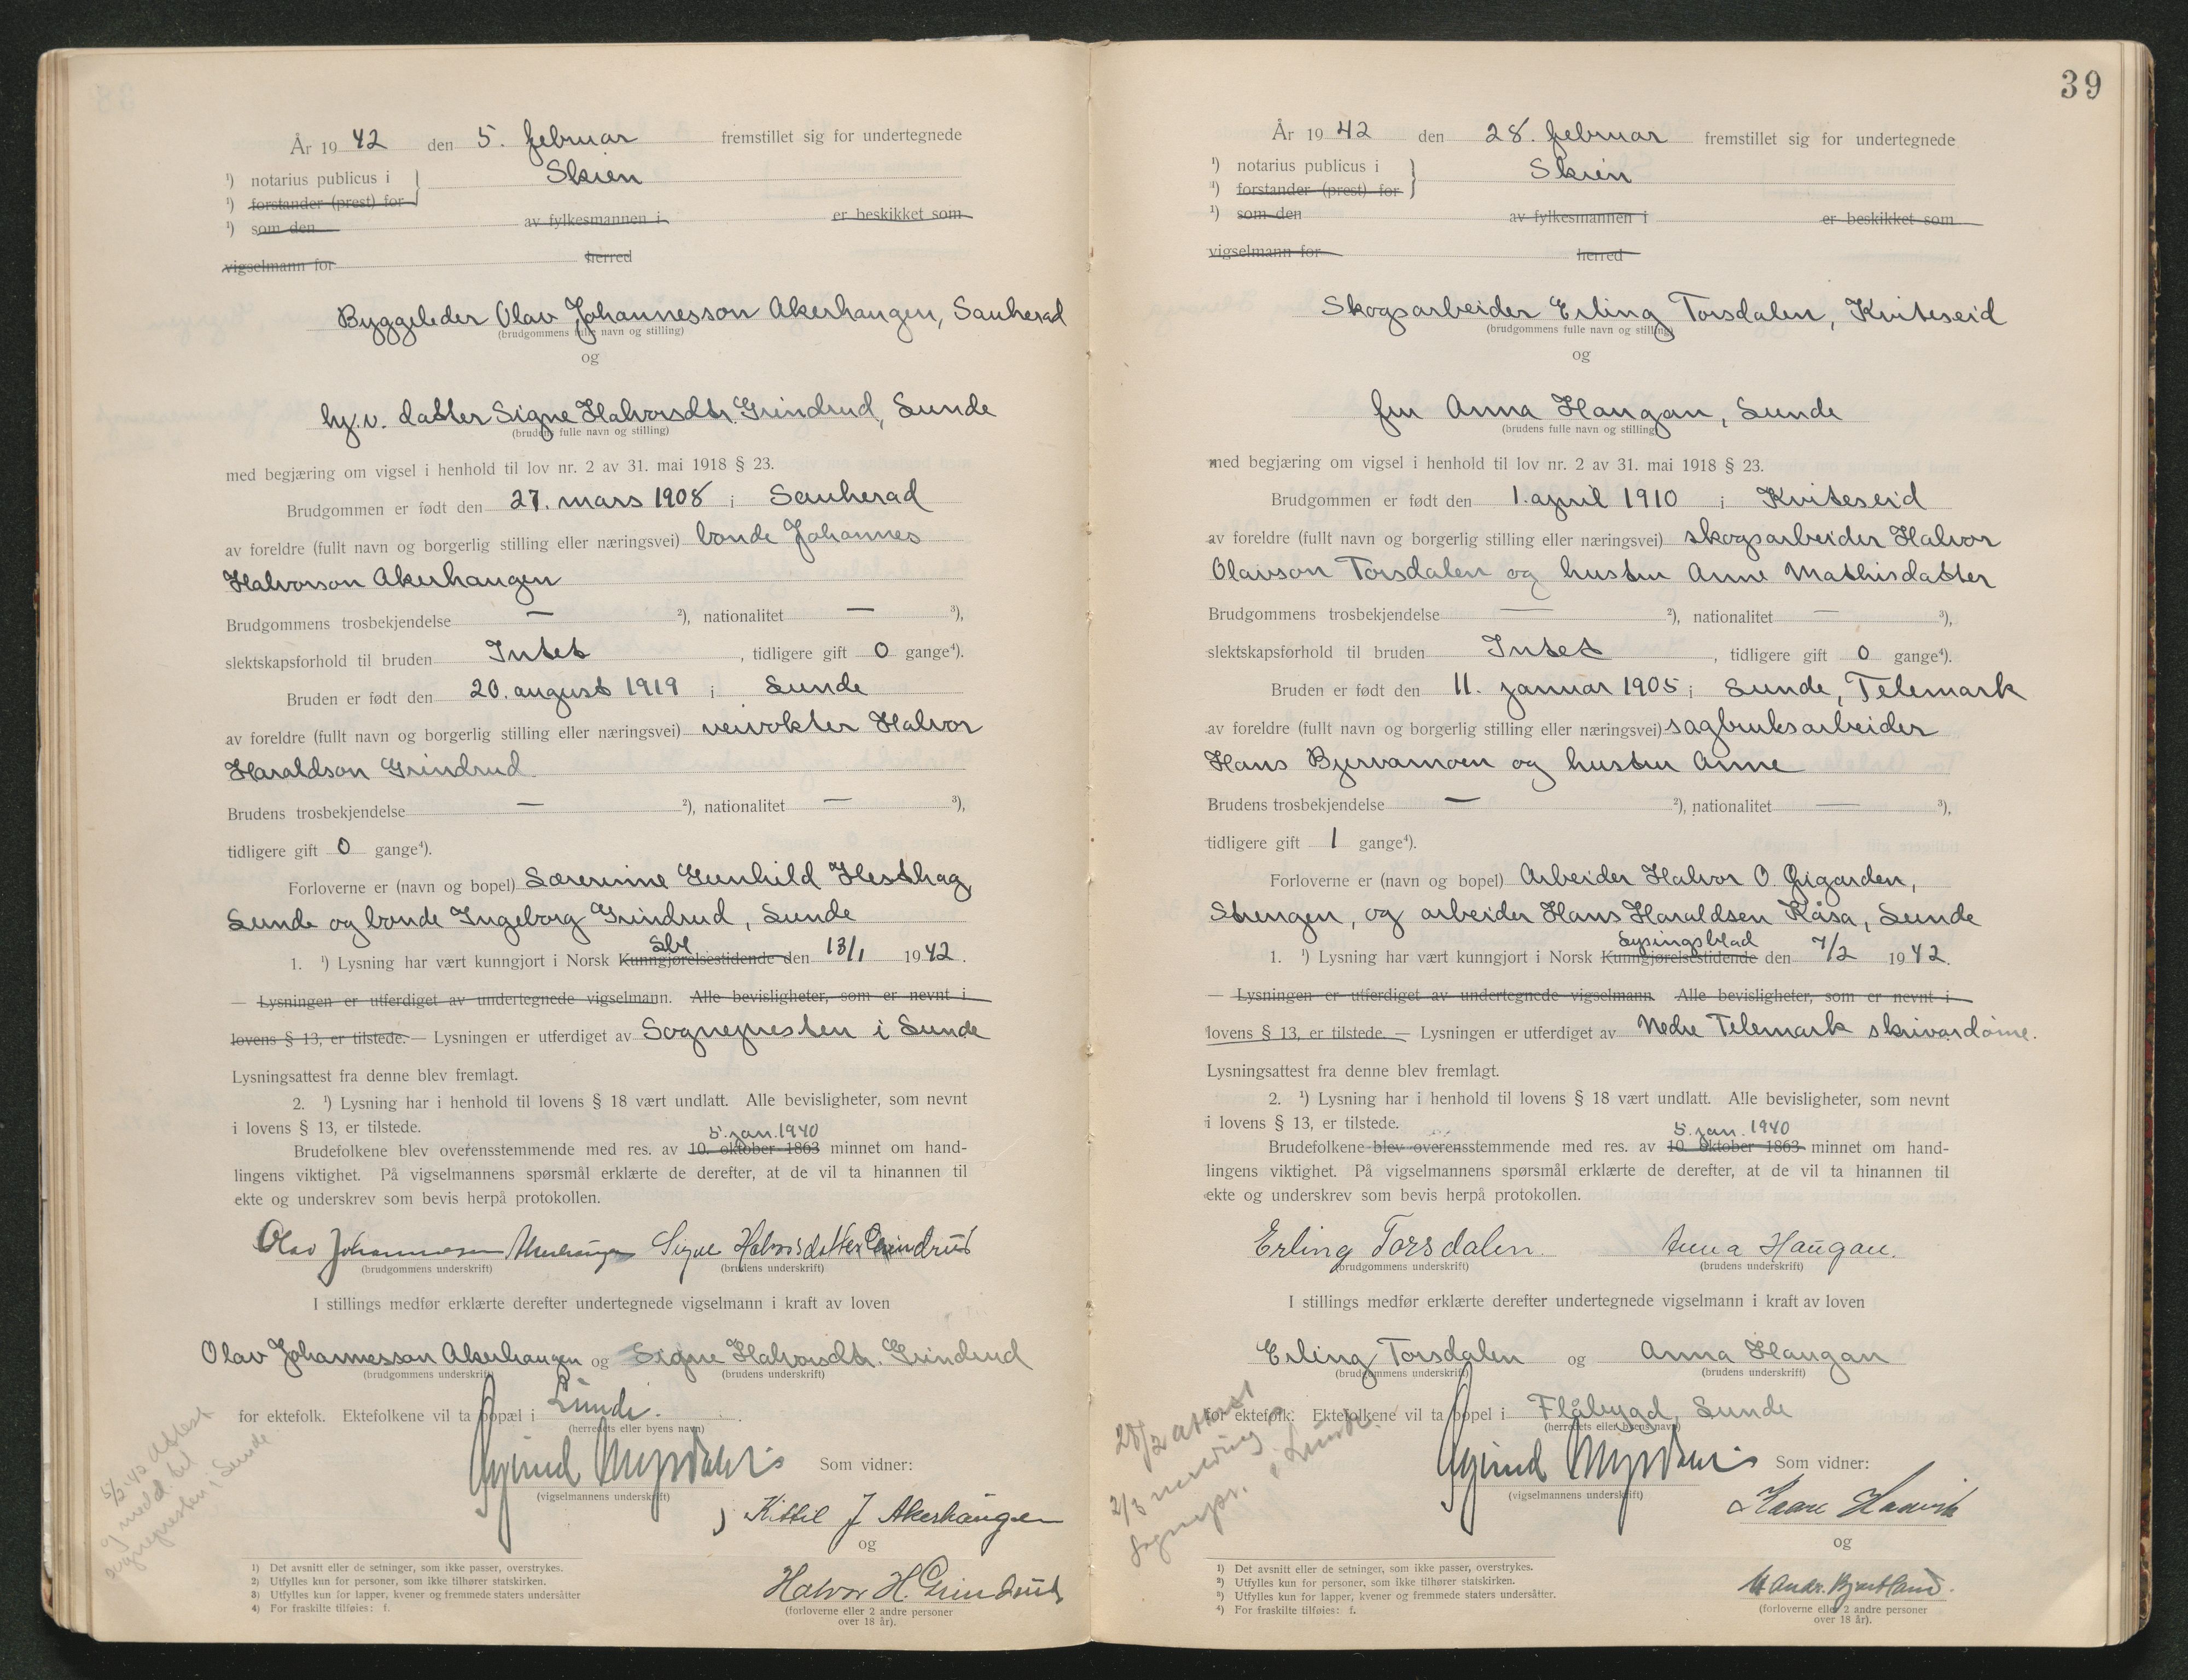 År 19 42 den 5. februar fremstillet sig for undertegnede
¹) notarius publicus i Skien
¹) forstander (prest) for
¹) som den av fylkesmannen i er beskikket som
vigselmann for herred
Byggeleder Olav Johannesson Akerhaugen, Sauherad
(brudgommens fulle navn og stilling)
og
hj.v. datter Signe Halvorsdtr. Grindrud, Lunde
(brudens fulle navn og stilling)
med begjæring om vigsel i henhold til lov nr. 2 av 31. mai 1918 § 23.
Brudgommen er født den 27. mars 1908 i Sauherad
av foreldre (fullt navn og borgerlig stilling eller næringsvei) bonde Johannes
Halvorson Akerhaugen
Brudgommens trosbekjendelse — ²), nationalitet — ³),
slektskapsforhold til bruden Intet, tidligere gift 0 gange⁴).
Bruden er født den 20. august 1919 i Lunde
av foreldre (fullt navn og borgerlig stilling eller næringsvei) veivokter Halvor
Haraldson Grindrud
Brudens trosbekjendelse — ²), nationalitet — ³),
tidligere gift 0 gange⁴).
Forloverne er (navn og bopel) Lærerinne Gunhild Hesthag
Lunde og bonde Ingeborg Grindrud, Lunde
Lbl
1. ¹) Lysning har vært kunngjort i Norsk Kunngjørelsestidende den 13/1 1942.
— Lysningen er utferdiget av undertegnede vigselmann. Alle bevisligheter, som er nevnt i
lovens § 13, er tilstede. — Lysningen er utferdiget av Sognepresten i Lunde
Lysningsattest fra denne blev fremlagt.
2. ¹) Lysning har i henhold til lovens § 18 vært undlatt. Alle bevisligheter, som nevnt
i lovens § 13, er tilstede.
5. jan. 1940
Brudefolkene blev overensstemmende med res. av 10. oktober 1863 minnet om hand-
lingens viktighet. På vigselmannens spørsmål erklærte de derefter, at de vil ta hinannen til
ekte og underskrev som bevis herpå protokollen.
Olav Johannesson Akerhaugen Signe Halvorsdatter Grindrud
(brudgommens underskrift) (brudens underskrift)
I stillings medfør erklærte derefter undertegnede vigselmann i kraft av loven
Olav Johannesson Akerhaugen og Signe Halvorsdtr. Grindrud
(brudgommens underskrift) (brudens underskrift)
for ektefolk. Ektefolkene vil ta bopæl i Lunde.
(herredets eller byens navn)
Som vidner:
(vigselmannens underskrift)
Kittil J Akerhaugen
og
Halvor H. Grindrud
(forloverne eller 2 andre personer
over 18 år).
5/2 42 attest
og medd. til
sognepresten i Lunde
1) Det avsnitt eller de setninger, som ikke passer, overstrykes.
2) Utfylles kun for personer, som ikke tilhører statskirken.
3) Utfylles kun for lapper, kvener og fremmede staters undersåtter
4) For fraskilte tilføies: f.
39
År 19 42 den 28. februar fremstillet sig for undertegnede
¹) notarius publicus i Skien
¹) forstander (prest) for
¹) som den av fylkesmannen i er beskikket som
vigselmann for herred
Skogsarbeider Erling Torsdalen, Kviteseid
(brudgommens fulle navn og stilling)
og
fru Anna Haugan, Lunde
(brudens fulle navn og stilling)
med begjæring om vigsel i henhold til lov nr. 2 av 31. mai 1918 § 23.
Brudgommen er født den 1. april 1910 i Kviteseid
av foreldre (fullt navn og borgerlig stilling eller næringsvei) skogsarbeider Halvor
Olavson Torsdalen og hustru Anne Mathisdatter
Brudgommens trosbekjendelse — ²), nationalitet — ³),
slektskapsforhold til bruden Intet, tidligere gift 0 gange⁴).
Bruden er født den 11. januar 1905 i Lunde, Telemark
av foreldre (fullt navn og borgerlig stilling eller næringsvei) sagbruksarbeider
Hans Bjervamoen og hustru Anne
Brudens trosbekjendelse — ²), nationalitet — ³),
tidligere gift 1 gange⁴).
Forloverne er (navn og bopel) Arbeider Halvor O.
Strengen, og arbeider Hans Haraldsen Kåsa, Lunde
Lysingsblad
1. ¹) Lysning har vært kunngjort i Norsk Kunngjørelsestidende den 7/2 1942.
— Lysningen er utferdiget av undertegnede vigselmann Alle bevisligheter, som er nevnt i
lovens § 13, er tilstede. — Lysningen er utferdiget av Nedre Telemark skrivardøme.
Lysningsattest fra denne blev fremlagt.
2. ¹) Lysning har i henhold til lovens § 18 vært undlatt. Alle bevisligheter, som nevnt
i lovens § 13, er tilstede.
5. jan. 1940
Brudefolkene blev overensstemmende med res. av 10. oktober 1863 minnet om hand-
lingens viktighet. På vigselmannens spørsmål erklærte de derefter, at de vil ta hinannen til
ekte og underskrev som bevis herpå protokollen.
Erling Torsdalen. Anna Haugan.
(brudgommens underskrift) (brudens underskrift)
I stillings medfør erklærte derefter undertegnede vigselmann i kraft av loven
Erling Torsdalen og Anna Haugan
(brudgommens underskrift) (brudens underskrift)
for ektefolk. Ektefolkene vil ta bopel i Flåbygd, Lunde
(herredets eller byens navn)
Som vidner:
(vigselmannens underskrift)
og
(forloverne eller 2 andre personer
over 18 år).
28/2 attest
2/3 melding
sognepr. i Lunde.
¹) Det avsnitt eller de setninger, som ikke passer, overstrykes.
²) Utfylles kun for personer, som ikke tilhører statskirken.
³) Utfylles kun for lapper, kvener og fremmede staters undersåtter.
⁴) For fraskilte tilføies: f.